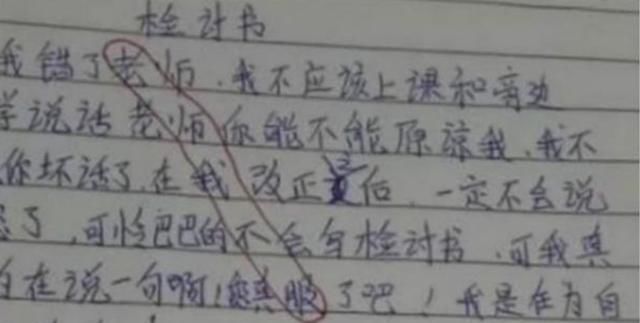 检讨书
我错了老师，我不应该上课和旁边
学说话老师你能不能原谅我，我不
你坏话了，在我改正之后，一定不会说
了，可怜巴巴的不会写检讨书，可我真
在说一句啊！您真服了吧！我是在为自